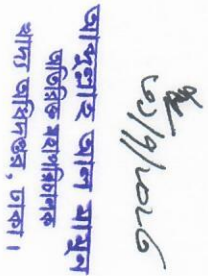 ৩১/৭/২০২৬
আব্দুল্লাহ আল মামুন
অতিরিক্ত মহাপরিচালক
খাদ্য অধিদপ্তর, ঢাকা।